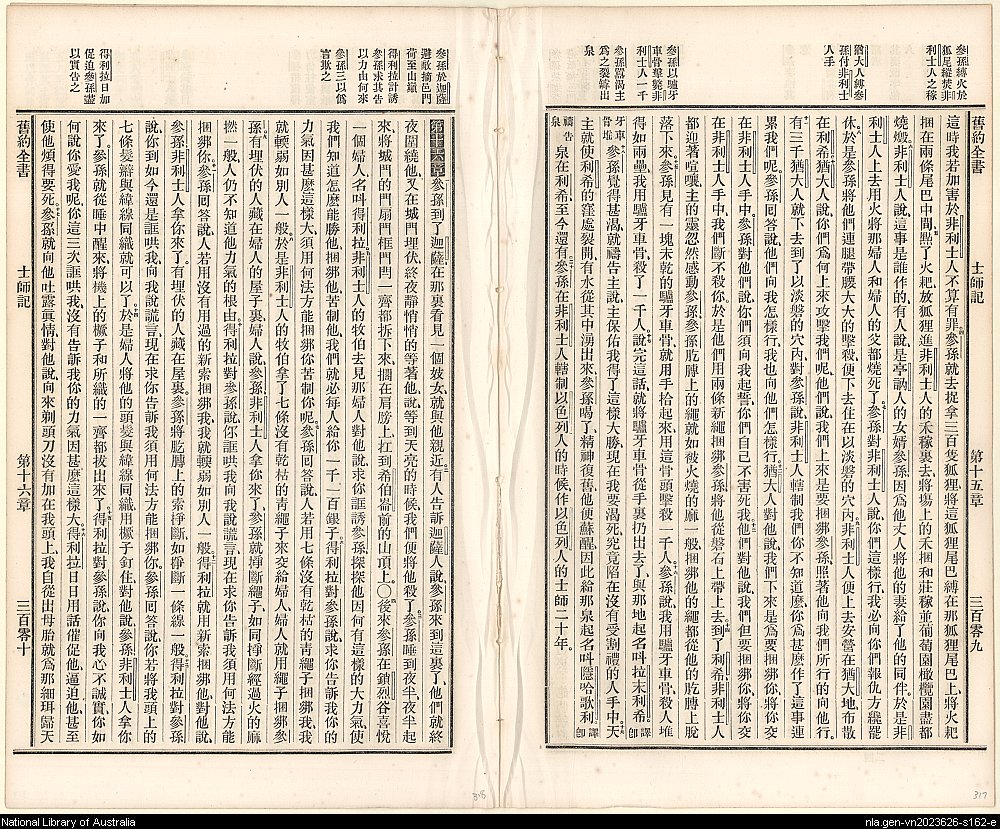 參孫縛火於
狐尾縱焚非
利士人之稼
猶大人縛參
孫付非利士
人手
參孫以驢牙
車骨擊斃非
利士人一千
參孫渴主
為之裂出
泉
舊約全書 士師記 第十五章 三百零九
這時我若加害於非利士人不算有罪參孫就去捉拿三百隻狐狸將這狐狸尾巴縛在那狐狸尾巴上將火把
捆在兩條尾巴中間點了火把放狐狸進非利士人的禾稼裏去將塲上的禾捆和莊稼並葡萄園橄欖園盡都
燒燬非利士人說這事是誰作的有人說是亭訥人的女婿參孫因為他丈人將他的妻給了他的同伴於是非
利士人上去用火將那婦人和婦人的父都燒死了參孫對非利士人說你們這樣行我必向你們報仇方纔罷
休於是參孫將他們連腿帶腰大大的擊殺便下去住在以淡磐的穴內非利士人便上去安營在猶大地布散
在利希猶大人說你們爲何上來攻擊我們呢他們說我們上來是要捆綁參孫照著他向我們所行的向他行
有三千猶大人就下去到了以淡磐的穴內對參孫說非利士人轄制我們你不知道麽你爲甚麽作了這事連
累我們呢參孫回答說他們向我怎樣行我也向他們怎樣行猶大人對他說我們下來是爲要捆綁你將你交
在非利士人手中參孫對他們說你們須向我起誓你們自己不害死我他們對他說我們但要捆綁你將你交
在非利士人手中我們斷不殺你於是他們用兩條新繩捆綁參孫將他從磐石上帶上去到了利希非利士人
都迎着喧嚷主的靈忽然感動參孫參孫肐膊上的繩就如被火燒的麻一般捆綁他的繩都從他的肐膊上脫
落下來參孫見有一塊未乾的驢牙車骨就用手拾起來用這骨頭擊殺一千人參孫說我用驢牙車骨殺人堆
得如兩壘我用驢牙車骨殺了一千人說完這話就將驢牙車骨從手裏扔出去了與那地起名叫拉末利希譯卽
牙車骨堆參孫覺得甚渴就禱告主說主保佑我得了這樣大勝現在我要渴死究竟陷在沒有受割禮的人手中天
主就使利希的窪處裂開有水從其中湧出來參孫喝了精神復舊他便蘇醒因此給那泉起名叫隱哈歌利譯卽
禱告泉泉在利希至今還有參孫在非利士人轄制以色列人的時候作以色列人的士師二十年
317
參孫於迦薩
避敵摘邑門
荷至山嶺
得利拉計誘
參孫求其告
以力由何來
參孫三以偽
言欺之
得利拉日加
促迫參孫盡
以實告之
第十六章參孫到了迦薩在那裏看見一個妓女就與他親近有人告訴迦薩人說參孫來到這裏了他們就終
夜圍繞他又在城門埋伏終夜靜悄悄的等著他說等到天亮的時候我們便將他殺了參孫睡到夜半夜半起
來將城門的門扇門框門閂一齊都拆下來擱在肩膀上扛到希伯崙前的山頂上〇後來參孫在鎖烈谷喜悅
一個婦人名叫得利拉非利士人的牧伯去見那婦人對他說求你誆誘參孫探探他因何有這樣的大力氣使
我們知道怎麽能勝他捆綁他苦制他我們就必每人給你一千一百銀子得利拉對參孫說求你告訴我你的
力氣因甚麽這樣大須用何法方能捆綁你苦制你呢參孫回答說人若用七條沒有乾枯的靑繩子捆綁我我
就輭弱如別人一般於是非利士人的牧伯拿了七條沒有乾枯的靑繩子來交給婦人婦人就用繩子捆綁參
孫有埋伏的人藏在婦人的屋子裏婦人說參孫非利士人拿你來了參孫就掙斷繩子如同掙斷經過火的麻
撚一般人仍不知道他力氣的根由得利拉對參孫說你誆哄我向我說謊言現在求你告訴我須用何法方能
捆綁你參孫回答說人若用沒有用過的新索捆綁我我就輭弱如別人一般得利拉就用新索捆綁他對他說
參孫非利士人拿你來了有埋伏的人藏在屋裏參孫將肐膊上的索掙斷如掙斷一條線一般得利拉對參孫
說你到如今還是誆哄我向我說謊言現在求你告訴我須用何法方能捆綁你參孫回答說你若將我頭上的
七條髮辮與緯線同織就可以了於是婦人將他的頭髮與緯線同織用橛子釘住對他說參孫非利士人拿你
來了參孫就從睡中醒來將機上的橛子和所織的一齊都拔出來了得利拉對參孫說你向我心不誠實你如
何說你愛我呢你這三次誆哄我沒有告訴我你的力氣因甚麽這樣大得利拉日日用話催促他逼迫他甚至
使他煩得要死參孫就向他吐露眞情對他說向來剃頭刀沒有加在我頭上我自從出母胎就爲那細珥歸天
舊約全書 士師記 第十六章 三百零十
318
National Library of Australia
nla.gen-vn2023626-s162-e